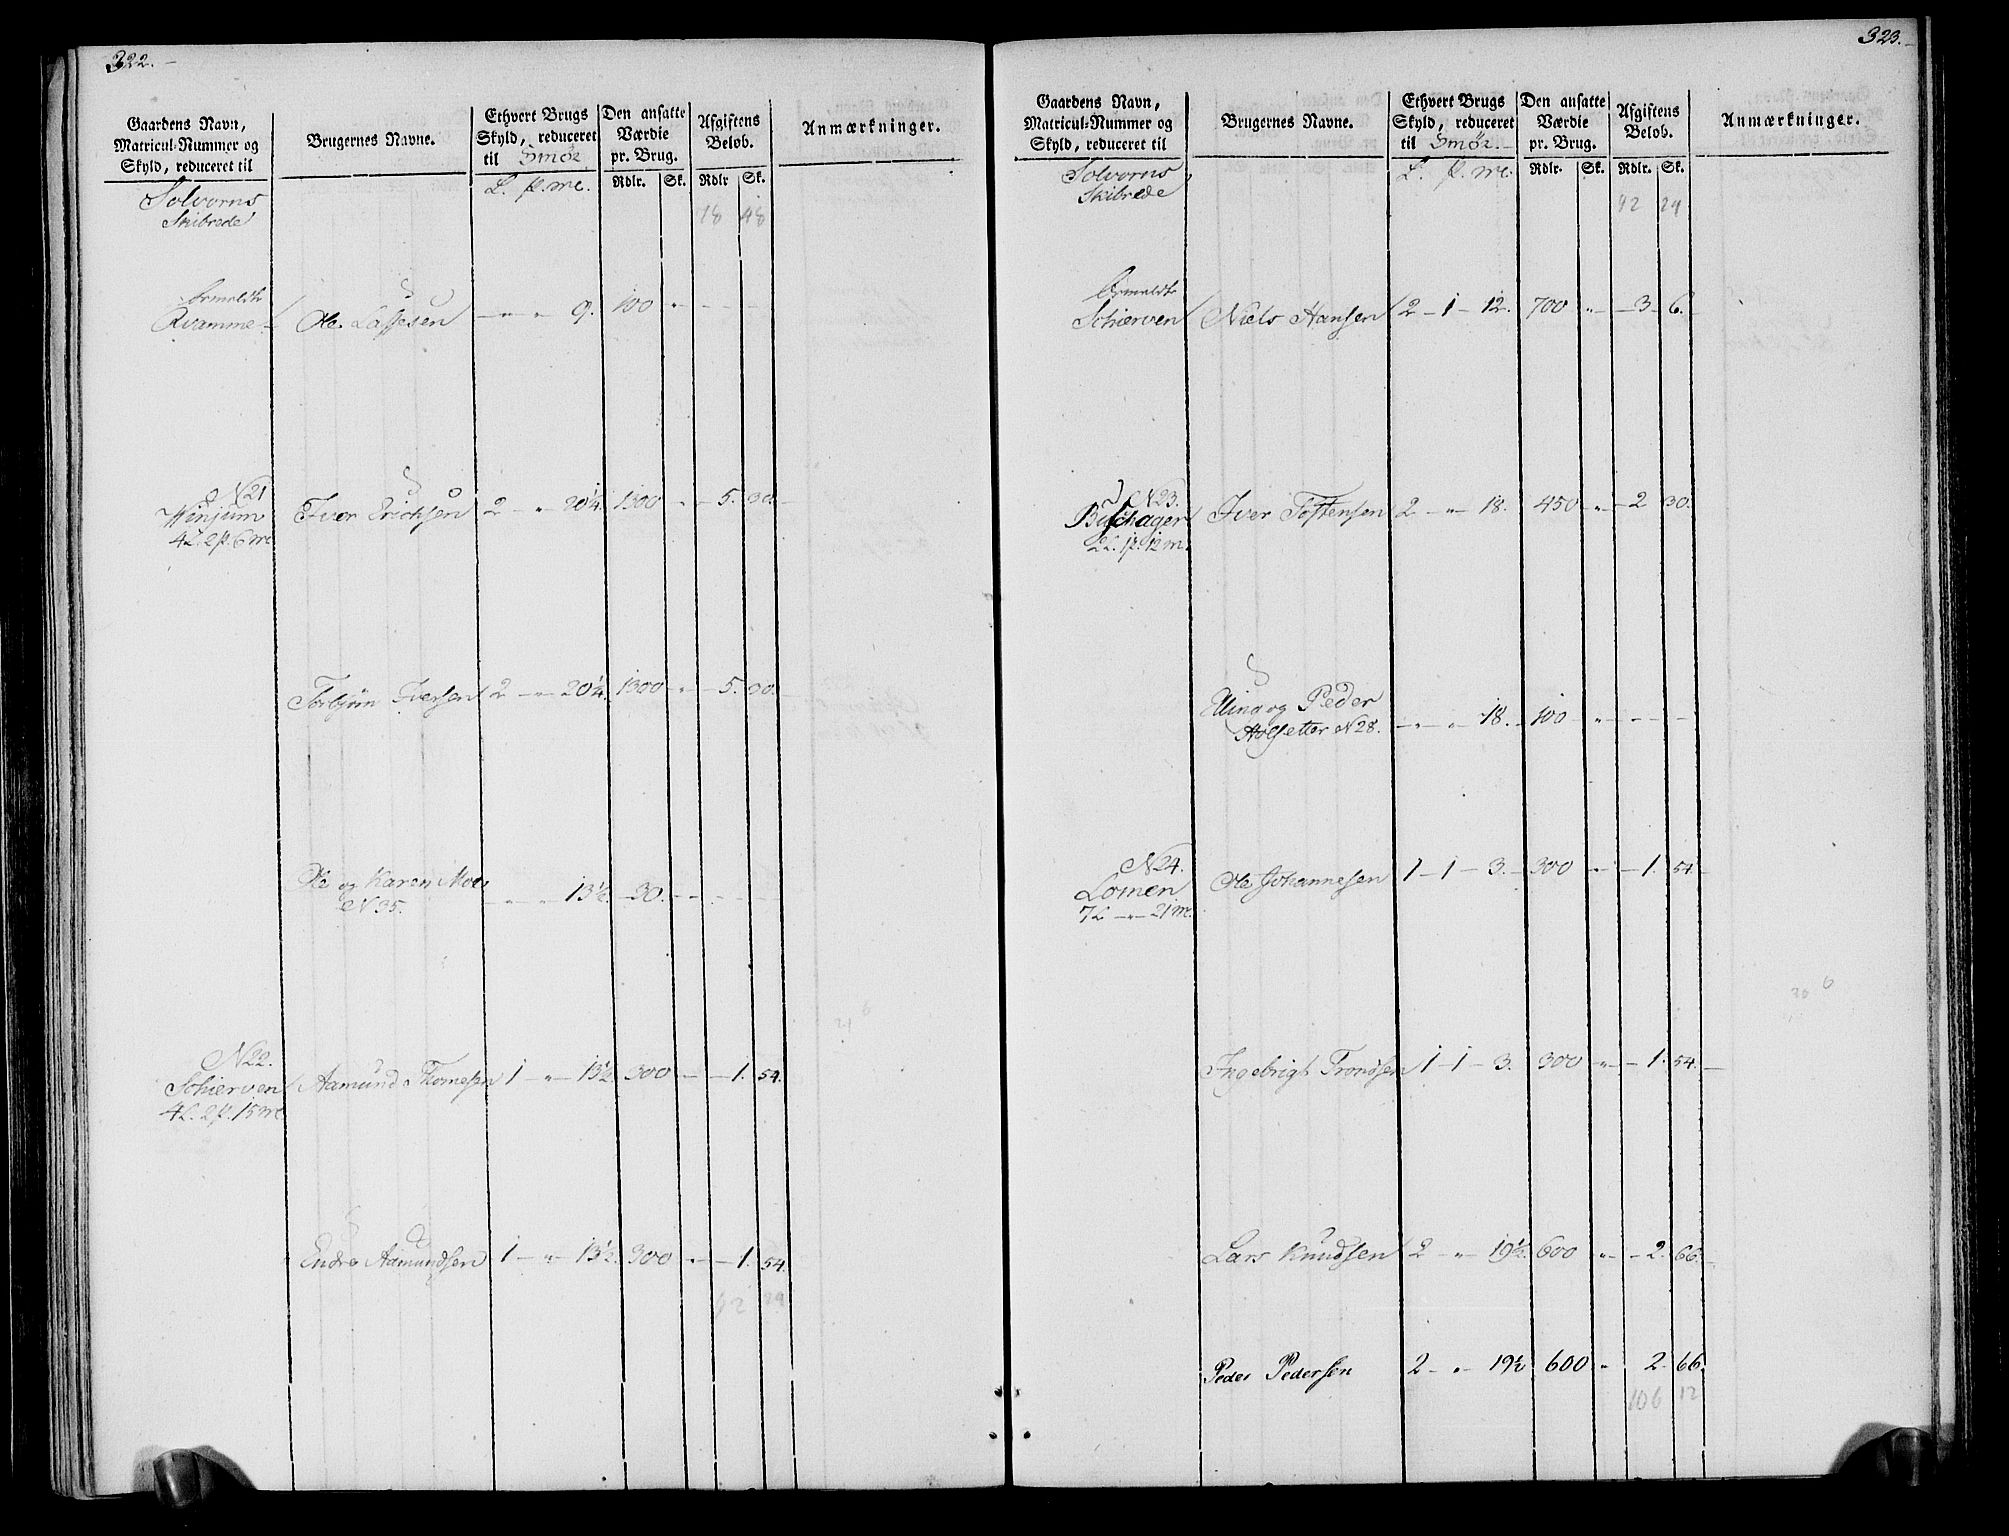 322.
Gaardens Navn, Matricul-Nummer og Skyld, reduceret til
Brugernes Navne.
Ethvert Brugs Skyld, reduceret til Smør
Den ansatte Værdie pr. Brug.
Afgiftens Beløb.
Anmærkninger.
L. p. mr. Rdlr. Sk. Rdlr Sk.
Solvorns
Skibrede
78 48
Ormeldte
Kvamme Ole Lassesen — " " 9. 100 " — — —
N 21
Winjum Iver Erichsen 2 — " — 20 1/4. 1300 " — 5. 30.
4 L. 2 p. 6 mr.
Torbjörn Iversen 2 — " — 20 1/4. 1300 — " — 5. 30.
Ole og Karen Moe — " — " 13 1/2. 30. — — — —
N 35.
N 22.
Schierven Aamund Thomesen 1 — " — 13 1/2. 300 — — 1. 54.
4 L. 2 p. 15 mr.
21 6
Endre Aamundsen 1 — " — 13 1/2. 300 " — 1. 54.
92 24
323.
Gaardens Navn, Matricul-Nummer og Skyld, reduceret til
Brugernes Navne.
Ethvert Brugs Skyld, reduceret til Smør
Den ansatte Værdie pr. Brug.
Afgiftens Beløb.
Anmærkninger.
L. p. mr. Rdlr. Sk. Rdlr. Sk.
Solvorns
Skibrede
92 24
Ormeldte
Schierven Niels Hansen 2 — 1 — 12. 700 " — 3 — 6.
N 23.
Buschager Iver Tostensen 2 — " — 18. 450 " — 2 30.
2 L. 1 p. 12 mr.
Elling og Peder
Holsetter N 28. — " — " 18. 100 " — — —
N 24.
Lomen Ole Johannesen 1 — 1 — 3. 300 " — 1. 54.
7 L — " — 21 mr.
30 6
Ingebrigt Trondsen 1 — 1 — 3. 300 " — 1. 54.
Lars Knudsen 2 — " 19 1/2. 600 " — 2. 66.
Peder Pedersen 2 — " — 19 1/2 600 " 2. 66.
106 12